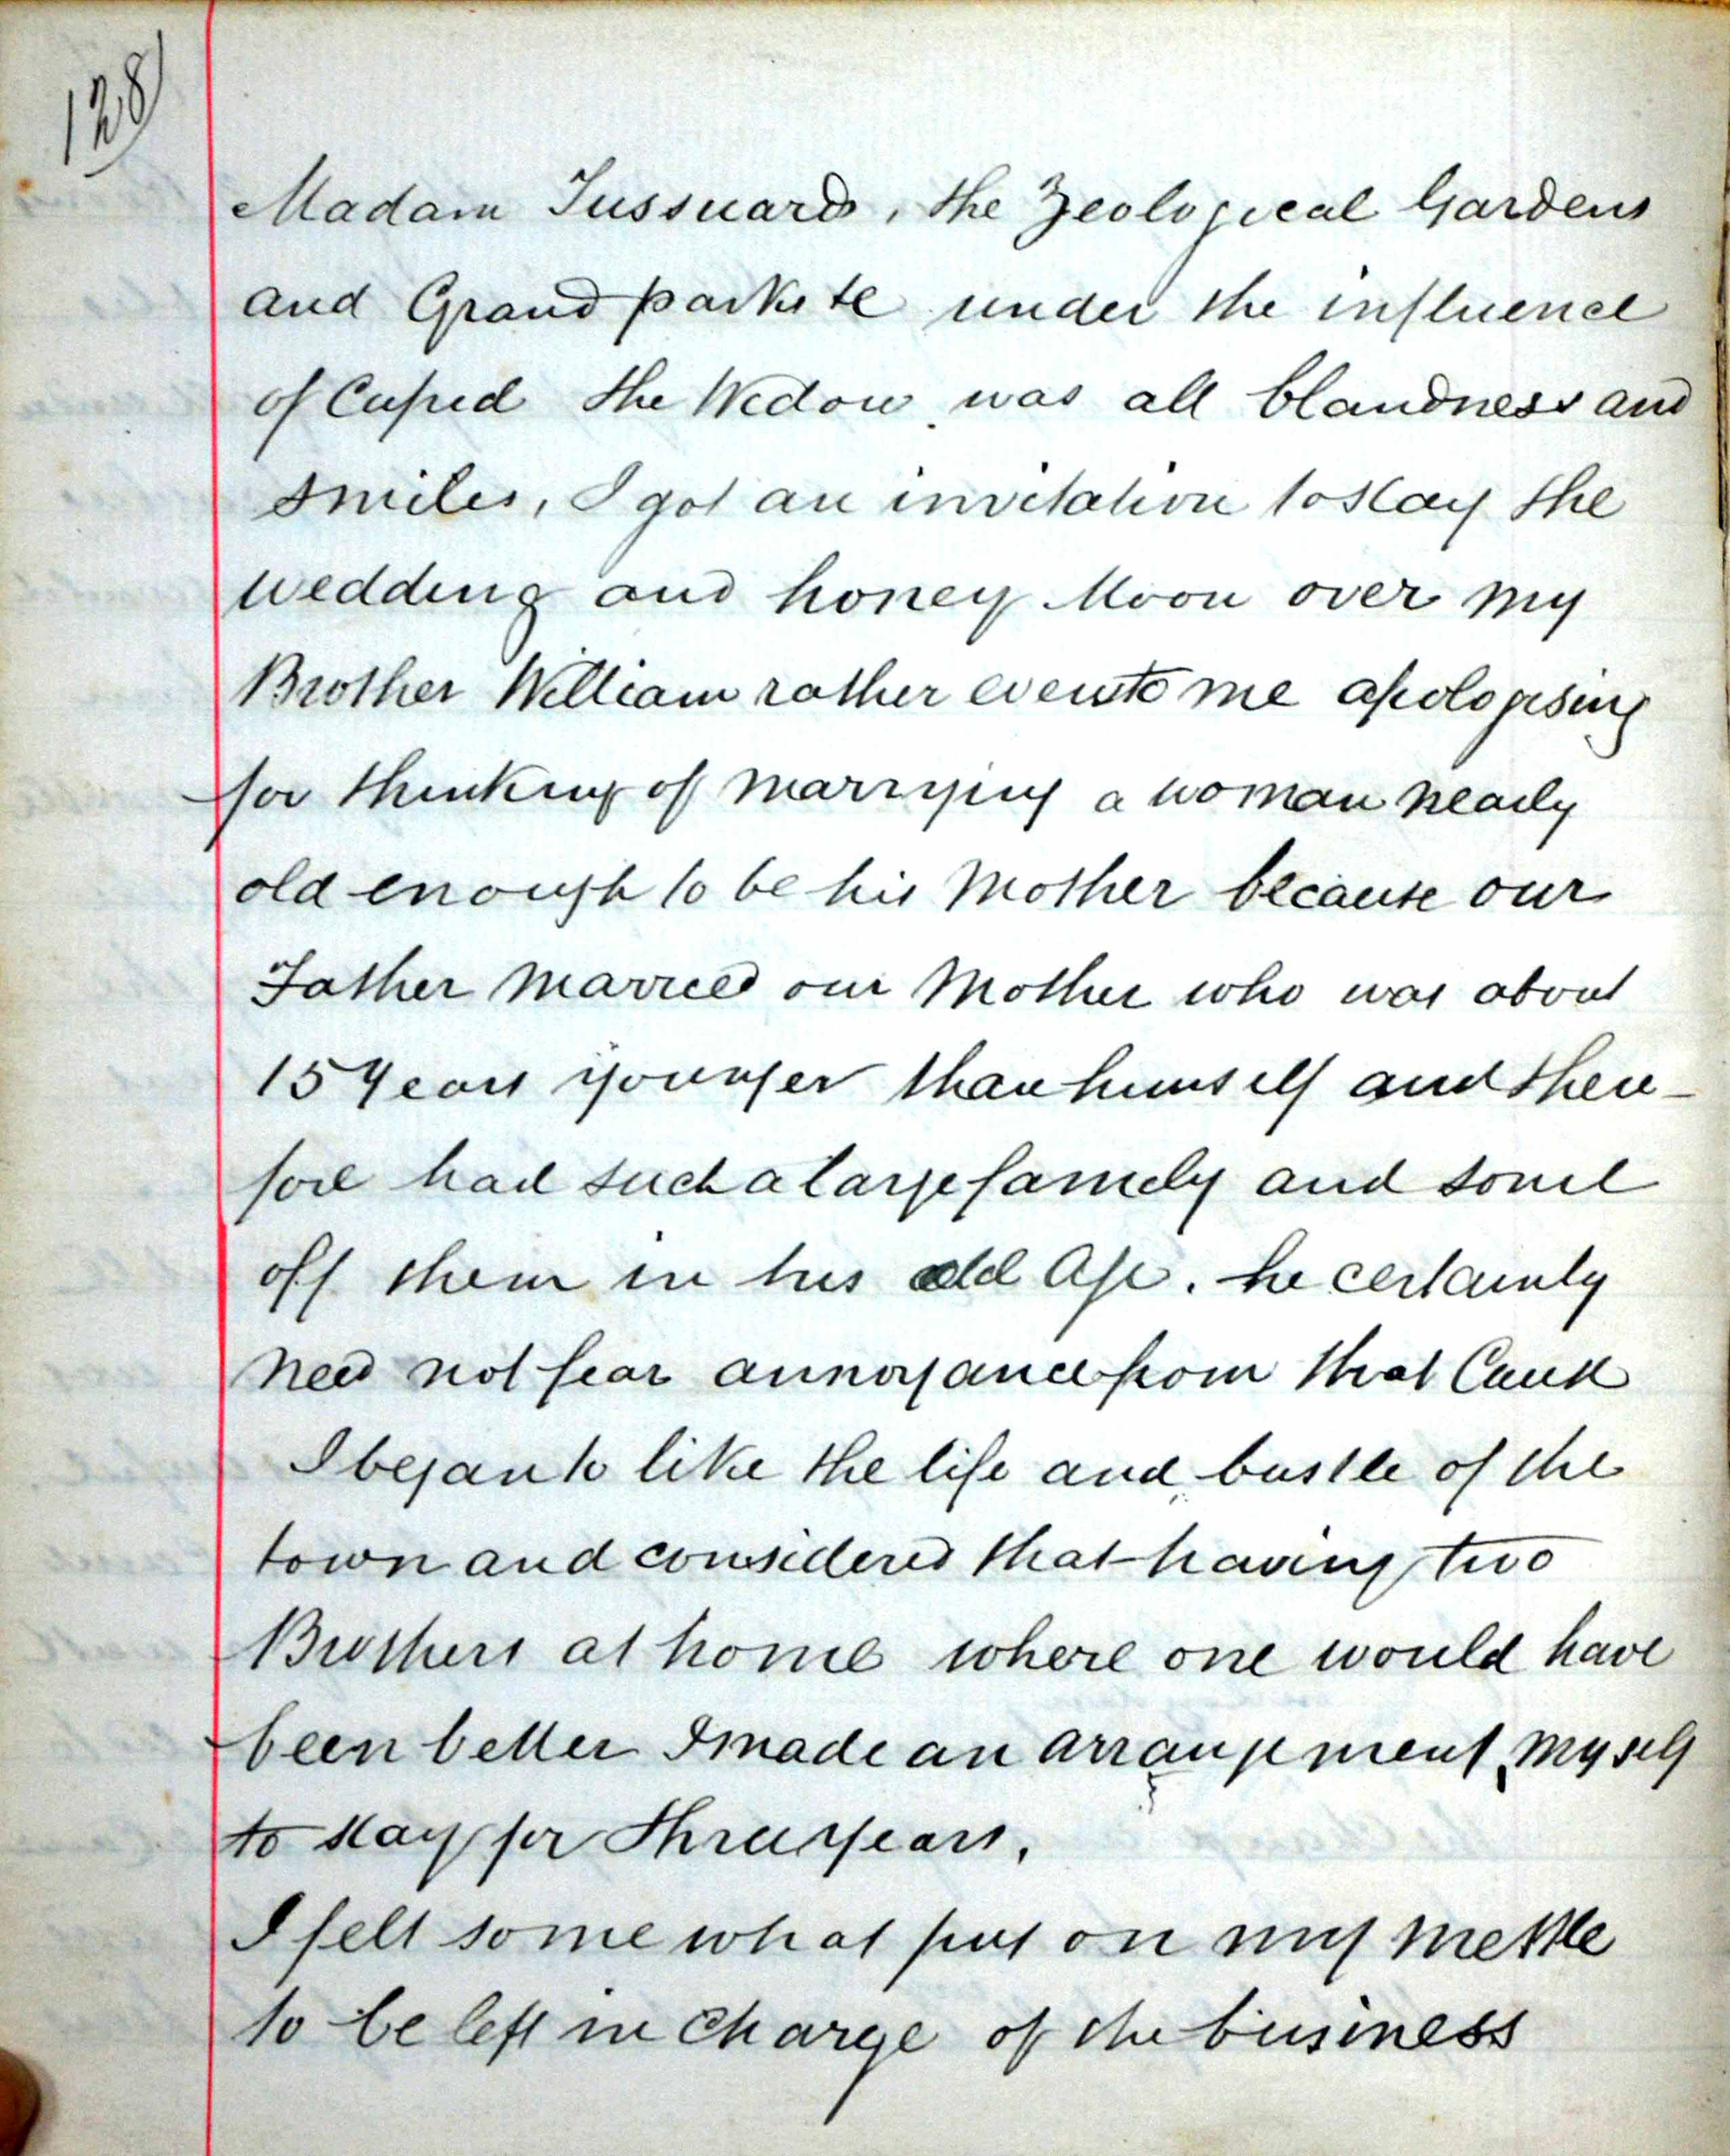 128)
Madam Tussuards, the Zeological Gardens
and Grand parks te under the influence
of Cupied the Widow was all blandness and
smiles, I got an invitation to stay the
wedding and honey Moon over my
Brother William rather even to me apologising
for thinking of marrying a woman nearly
old enough to be his Mother because our
Father married our Mother who was about
15 Years younger than himself and there-
fore had such a large family and some
off them in his old Age. he certainly
need not fear annoyance from that Cause
I began to like the life and bustle of the
town and considered that having two
Brothers at home where one would have
been better I made an arrangement myself
to stay for three years,
I felt some what put on my mettle
to be left in charge of the business